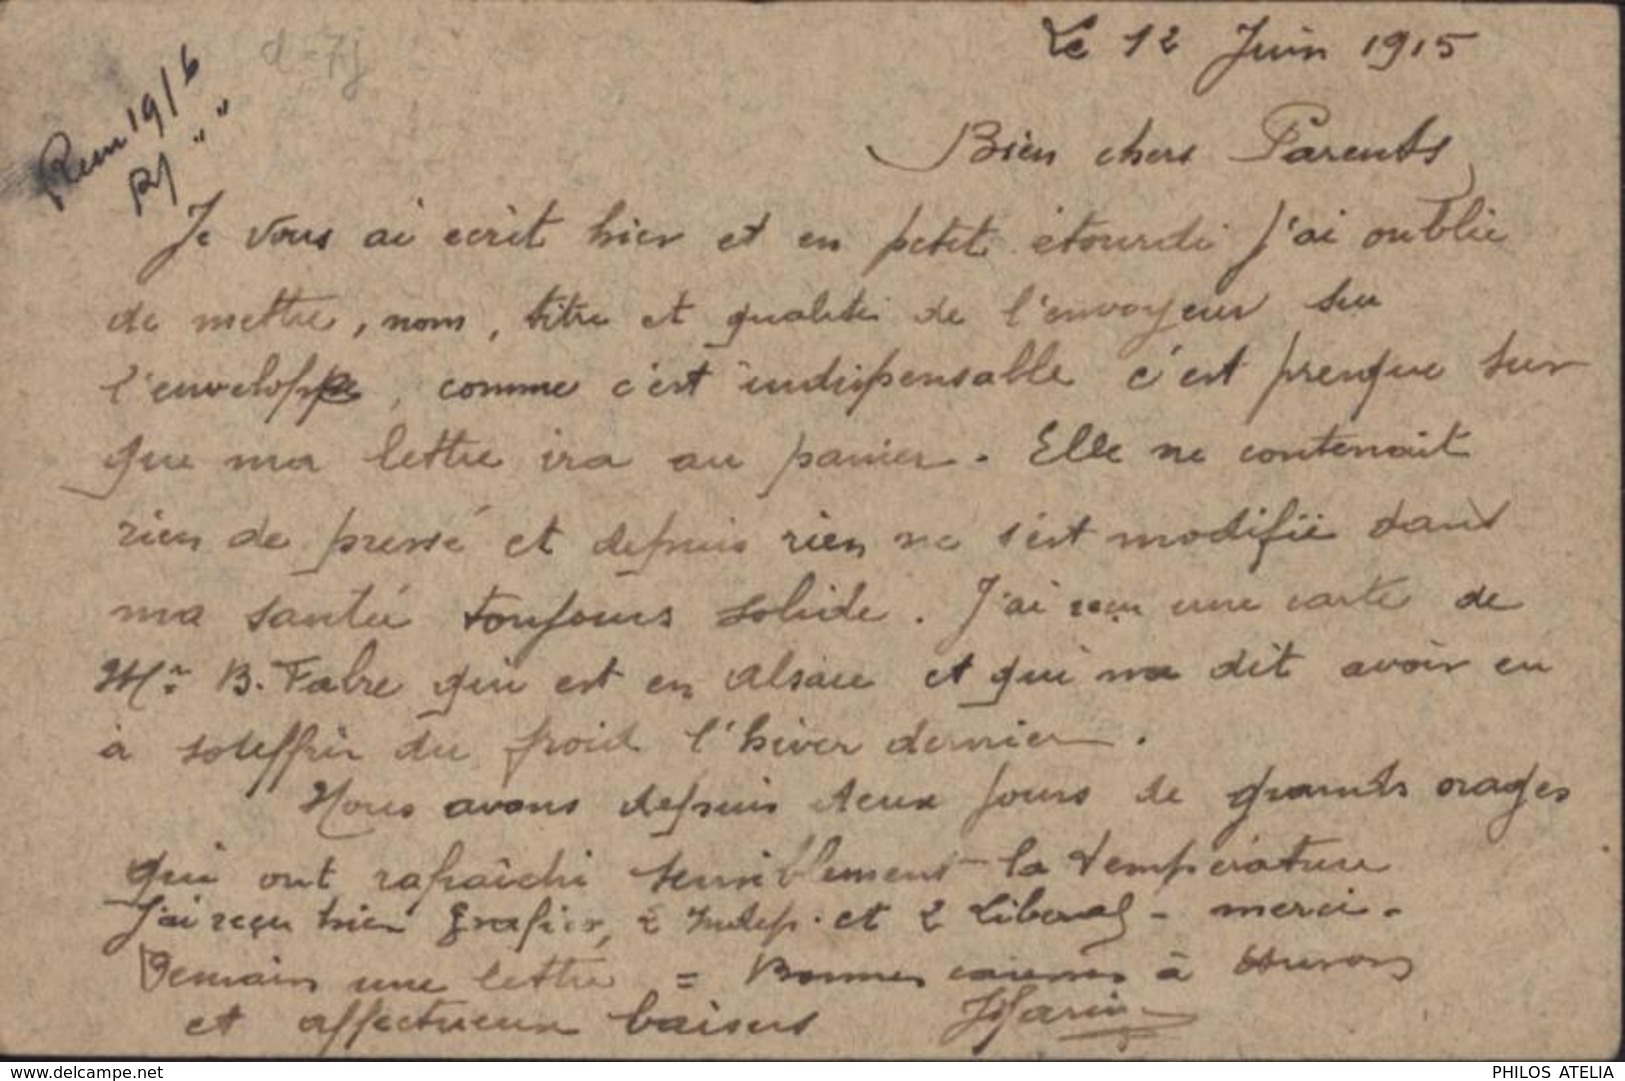 Le 12 Juin 1915
Rem 19/6
R/ " "
Bien chers Parents
Je vous ai écrit hier et en petit étourdi j'ai oublié
de mettre, nom, titre et qualité de l'envoyeur su
l'enveloppe, comme c'est indispensable c'est presque sur
que ma lettre ira au panier. Elle ne contenait
rien de pressé et depuis rien ne s'est modifié dans
ma santé toujours solide. J'ai reçu une carte de
Mr B. Fabre qui est en Alsace et qui ma dit avoir eu
à souffrir du froid l'hiver dernier.
Nous avons depuis deux jours de grands orages
qui ont rafraîchi sensiblement la température
J'ai reçu hier 2 Indép. et 2 Libéral - merci -
Demain une lettre = Bonnes caresses à
et affectueux baisers Marius
www.delcampe.net
PHILOS ATELIA